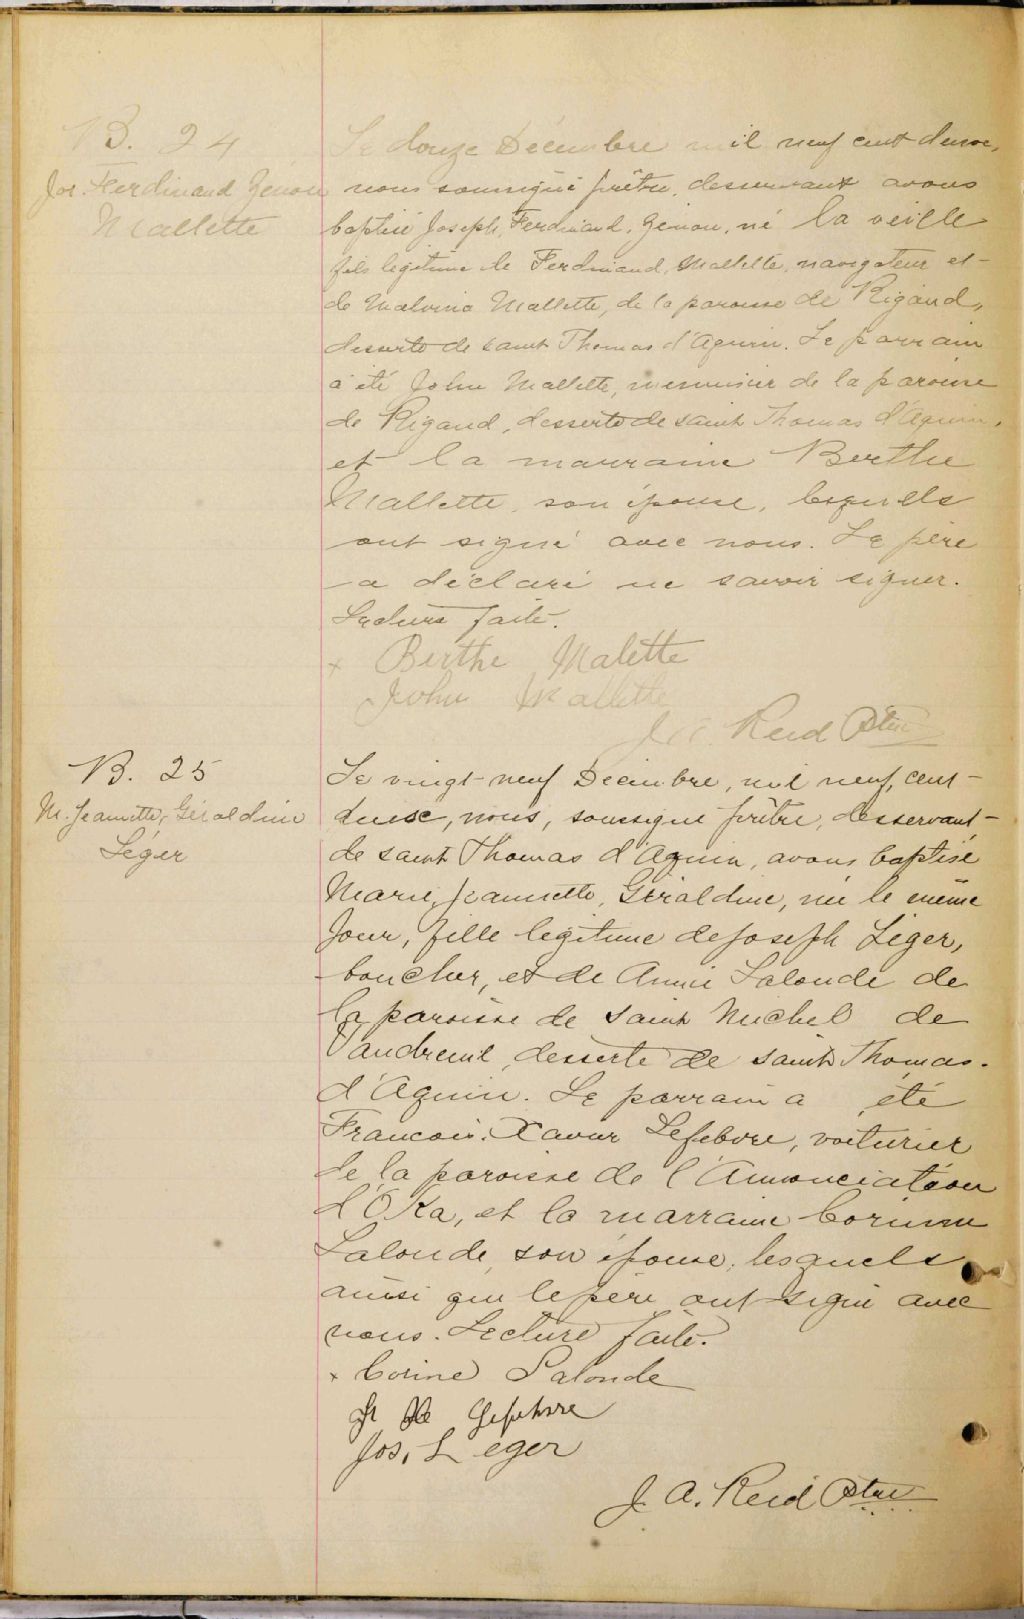 B. 24
Jos. Ferdinand Genou
Mallette
Le douze Décembre mil neuf cent douse,
nous soussigné prêtre, desservant avons
baptisé Joseph, Ferdinand, Genou, né la veille
fils légitime de Ferdinand, Mallette, navigateur et
de Malvina Mallette, de la paroisse de Rigaud,
desserte de saint Thomas d'Aquin. Le parrain
a été John Mallette, menuisier de la paroisse
de Rigaud, desserte de saint Thomas d'Aquin,
et la marraine Berthe
Mallette, son épouse, lesquels
ont signé avec nous. Le père
a déclaré ne savoir signer.
Lecture faite.
x Berthe Malette
John Mallette
J. A. Reid Ptre
B. 25
M. Jeannette, Géraldine
Léger
Le vingt-neuf Décembre, mil neuf, cent-
douse, nous, soussigné prêtre, desservant
de saint Thomas d'Aquin, avons baptisé
Marie, Jeannette, Géraldine, née le même
Jour, fille légitime de Joseph Léger,
boucher, et de Annie Lalonde de
la paroisse de saint Michel de
Vaudreuil, desserte de saint Thomas.
d'Aquin. Le parrain a été
Francois. Xavier Lefebvre, voiturier
de la paroisse de l'Annonciation
d'Oka, et la marraine Corinne
Lalonde, son épouse, lesquels
ainsi que le père ont signé avec
nous. Lecture faite.
x Corine Lalonde
Lefebvre
Jos, Leger
J. A. Reid Ptre